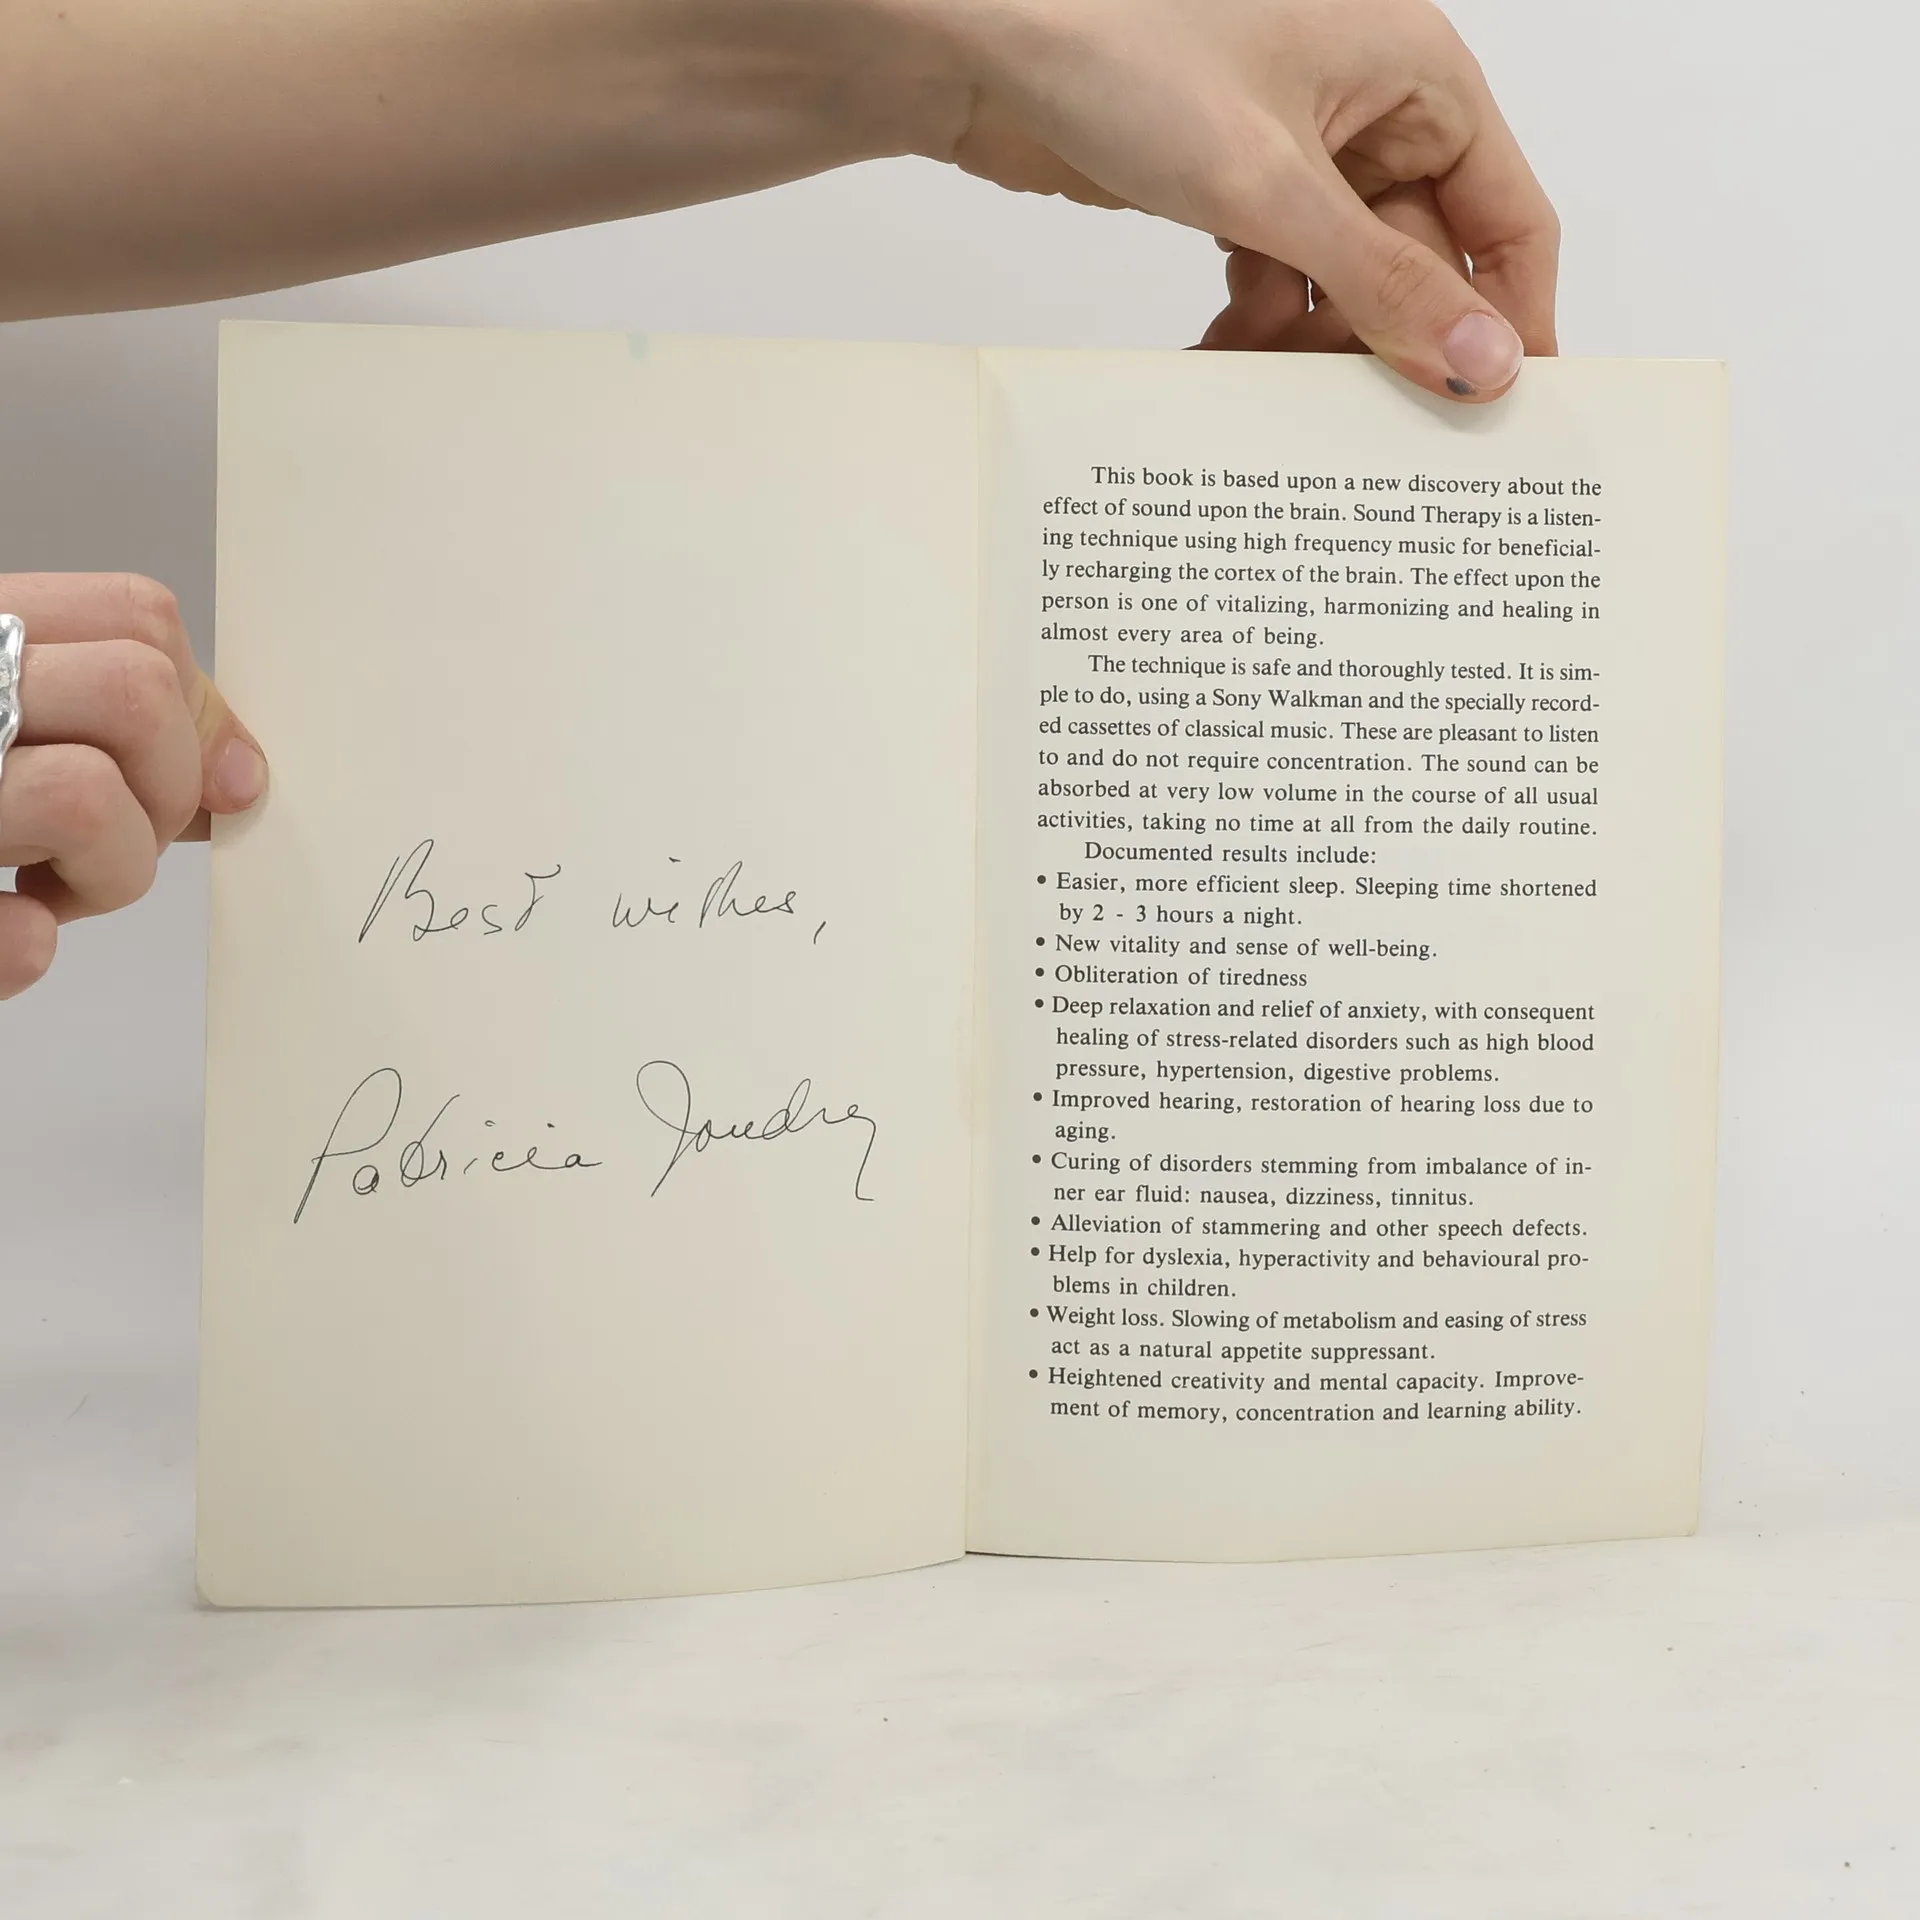 Best wishes,
Patricia Joudry
This book is based upon a new discovery about the
effect of sound upon the brain. Sound Therapy is a listen-
ing technique using high frequency music for beneficial-
ly recharging the cortex of the brain. The effect upon the
person is one of vitalizing, harmonizing and healing in
almost every area of being.
The technique is safe and thoroughly tested. It is sim-
ple to do, using a Sony Walkman and the specially record-
ed cassettes of classical music. These are pleasant to listen
to and do not require concentration. The sound can be
absorbed at very low volume in the course of all usual
activities, taking no time at all from the daily routine.
Documented results include:
• Easier, more efficient sleep. Sleeping time shortened
by 2 - 3 hours a night.
• New vitality and sense of well-being.
• Obliteration of tiredness
• Deep relaxation and relief of anxiety, with consequent
healing of stress-related disorders such as high blood
pressure, hypertension, digestive problems.
• Improved hearing, restoration of hearing loss due to
aging.
• Curing of disorders stemming from imbalance of in-
ner ear fluid: nausea, dizziness, tinnitus.
• Alleviation of stammering and other speech defects.
• Help for dyslexia, hyperactivity and behavioural pro-
blems in children.
• Weight loss. Slowing of metabolism and easing of stress
act as a natural appetite suppressant.
• Heightened creativity and mental capacity. Improve-
ment of memory, concentration and learning ability.